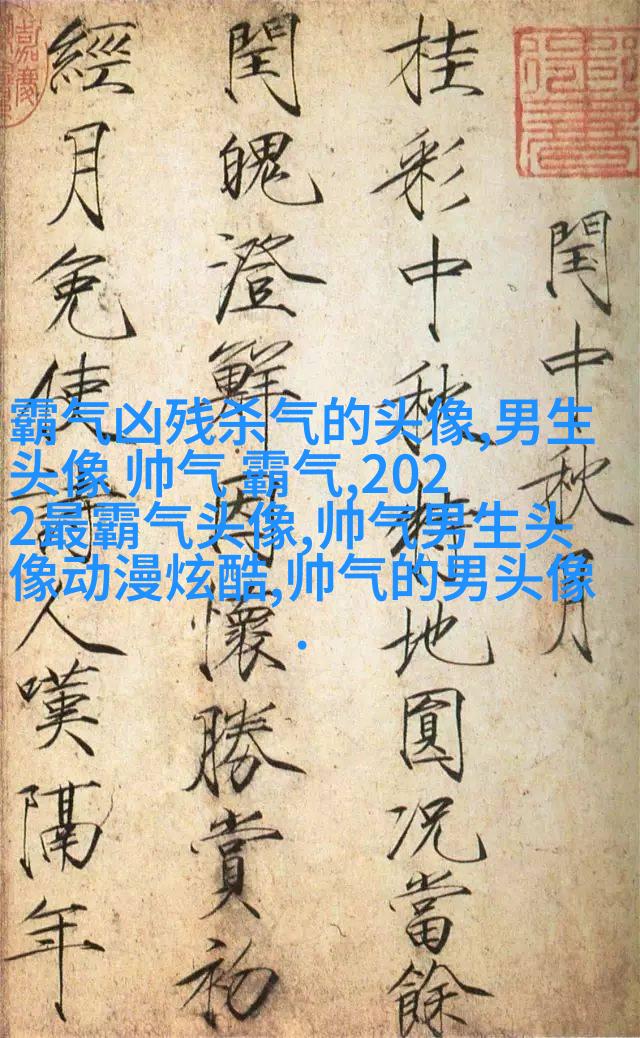 閏中秋月
桂彩中秋特地圓況當餘
閏魄澄鮮因懷勝賞初
經月免使詩人嘆隔年
霸气凶残杀气的头像,男生
头像 帅气 霸气,202
2最霸气头像,帅气男生头
像动漫炫酷,帅气的男头像
.